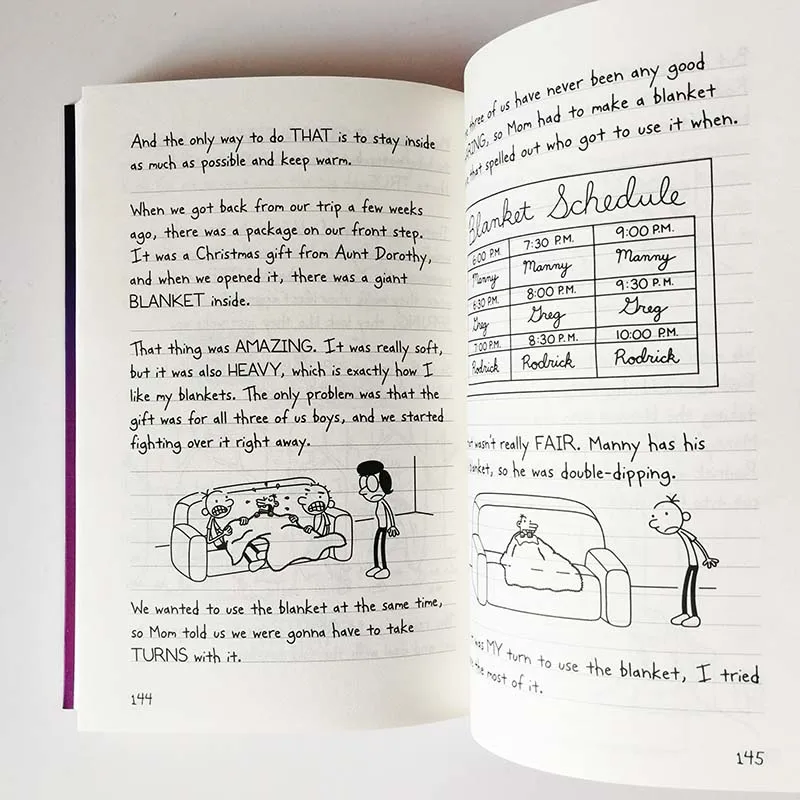 And the only way to do THAT is to stay inside
as much as possible and keep warm.
When we got back from our trip a few weeks
ago, there was a package on our front step.
It was a Christmas gift from Aunt Dorothy,
and when we opened it, there was a giant
BLANKET inside.
That thing was AMAZING. It was really soft,
but it was also HEAVY, which is exactly how I
like my blankets. The only problem was that the
gift was for all three of us boys, and we started
fighting over it right away.
We wanted to use the blanket at the same time,
so Mom told us we were gonna have to take
TURNS with it.
144
three of us have never been any good
so Mom had to make a blanket
that spelled out who got to use it when.
Blanket Schedule
6:00 P.M. 7:30 P.M. 9:00 P.M.
Manny Manny Manny
6:30 P.M. 8:00 P.M. 9:30 P.M.
Greg Greg Greg
7:00 P.M. 8:30 P.M. 10:00 P.M.
Rodrick Rodrick Rodrick
wasn't really FAIR. Manny has his
so he was double-dipping.
was MY turn to use the blanket, I tried
the most of it.
145